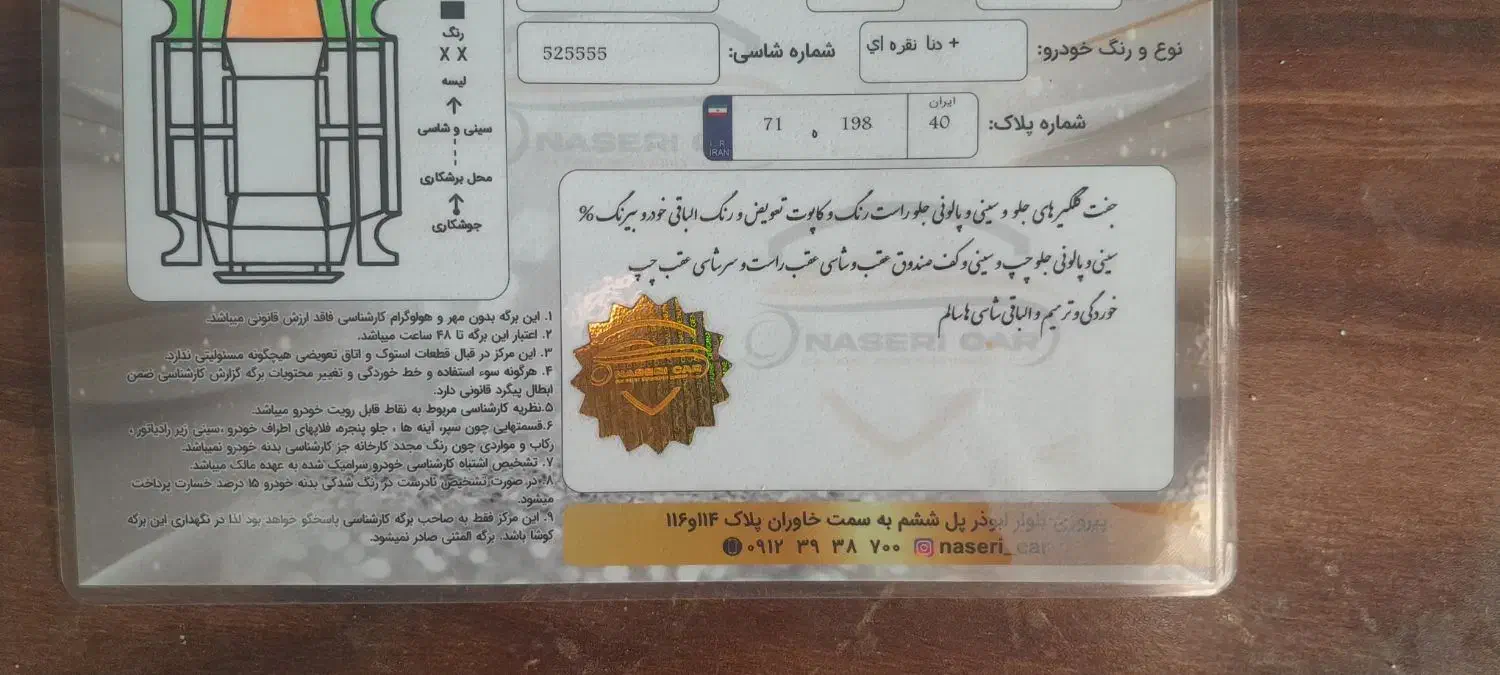 نوع و رنگ خودرو:
دنا نقره اي +
شماره شاسی:
525555
شماره پلاک:
ایران
40
198
ه
71
I.R
IRAN
رنگ
X X
لیسه
سینی و شاسی
محل برشکاری
جوشکاری
NASERI
جفت گلگیرهای جلو و سینی و پالونی جلو راست رنگ و کاپوت تعویض و رنگ الباقی خودرو بیرنگ %
سینی و پالونی جلو چپ و سینی و کف صندوق عقب و شاسی عقب راست و سرشاسی عقب چپ
خوردگی و ترمیم و الباقی شاسی ها سالم
NASERI CAR
NASERI CAR
۱. این برگه بدون مهر و هولوگرام کارشناسی فاقد ارزش قانونی میباشد.
۲. اعتبار این برگه تا ۴۸ ساعت میباشد.
۳. این مرکز در قبال قطعات استوک و اتاق تعویضی هیچگونه مسئولیتی ندارد.
۴. هرگونه سوء استفاده و خط خوردگی و تغییر محتویات برگه گزارش کارشناسی ضمن
ابطال پیگرد قانونی دارد.
۵.نظریه کارشناسی مربوط به نقاط قابل رویت خودرو میباشد.
۶.قسمتهایی چون سپر، آینه ها ، جلو پنجره، فلاپهای اطراف خودرو ،سینی زیر رادیاتور ،
رکاب و مواردی چون رنگ مجدد کارخانه جز کارشناسی بدنه خودرو نمیباشد.
۷. تشخیص اشتباه کارشناسی خودرو سرامیک شده به عهده مالک میباشد.
۸.در صورت تشخیص نادرست در رنگ شدگی بدنه خودرو ۱۵ درصد خسارت پرداخت
میشود.
۹. این مرکز فقط به صاحب برگه کارشناسی پاسخگو خواهد بود لذا در نگهداری این برگه
کوشا باشد. برگه المثنی صادر نمیشود.
پیروزی بلوار ابوذر پل ششم به سمت خاوران پلاک ۱۱۴و۱۱۶
naseri_car
۰۹۱۲ ۳۹ ۳۸ ۷۰۰